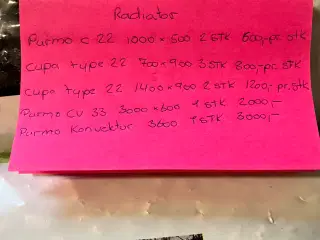 Radiator
Purmo C 22 1000 x 500 2 STK 600,- pr. stk
Cupa type 22 700 x 900 3 STK 800,- pr. STK
Cupa type 22 1400 x 900 2 STK 1200,- pr. STK
Purmo CV 33 3000 x 600 1 STK 2000,-
Purmo Konvektor 3600 1 STK 3000,-